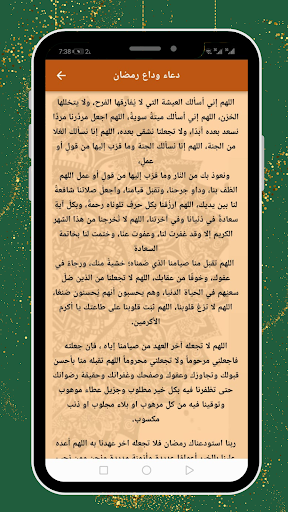 7:38
دعاء وداع رمضان
اللهم إني أسألك العيشة التي لا يُفارقها الفرح، ولا يتخللها
الحُزن، اللهم إني أسألك ميتةً سوية، اللهم اجعل مردّنا مردًا
نسعد بعده أبدًا، ولا تجعلنا نشقى بعده، اللهم إنا نسألك العُلا
من الجنة، اللهم إنا نسألك الجنّة وما قرّب إليها من قول أو
عمل،
ونعوذ بك من النار وما قرّب إليها من قول أو عمل، اللهم
الطف بنا، وداوِ جرحنا، وتقبل قيامنا، واجعل صلاتنا شافعةً
لنا بين يديك، اللهم ارزُقنا بكل حرف تلوناه رحمة، وبكل آية
سعادةً في دُنيانا وفي آخرتنا، اللهم لا تُخرجنا من هذا الشهر
الكريم إلا وقد غفرت لنا، وعفوت عنا، وختمت لنا بخاتمة
السعادة
اللهم تقبل منا صيامنا الذي صُمناه؛ خشيةً منك، ورجاءً في
عفوك، وخوفًا من عقابك، اللهم لا تجعلنا من الذين ضلّ سعيهم
في الحياة الدنيا، وهم يحسبون أنهم يُحسنون صُنعًا،
اللهم لا تزغ قلوبنا، اللهم ثبت قلوبنا على طاعتك يا أكرم
الأكرمين.
اللهم لا تجعله آخر العهد من صيامنا إياه ، فإن جعلته
فاجعلني مرحوماً ولا تجعلني محروماً اللهم تقبله منا بأحسن
قبولك وتجاوزك وعفوك وصفحك وغفرانك وحقيقة رضوانك
حتى تظفرنا فيه بكل خير مطلوب وجزيل عطاء موهوب
وتوقينا فيه من كل مرهوب او بلاء مجلوب او ذنوب
مكسوب.
ربنا استودعناك رمضان فلا تجعله آخر عهدنا به اللهم أعده